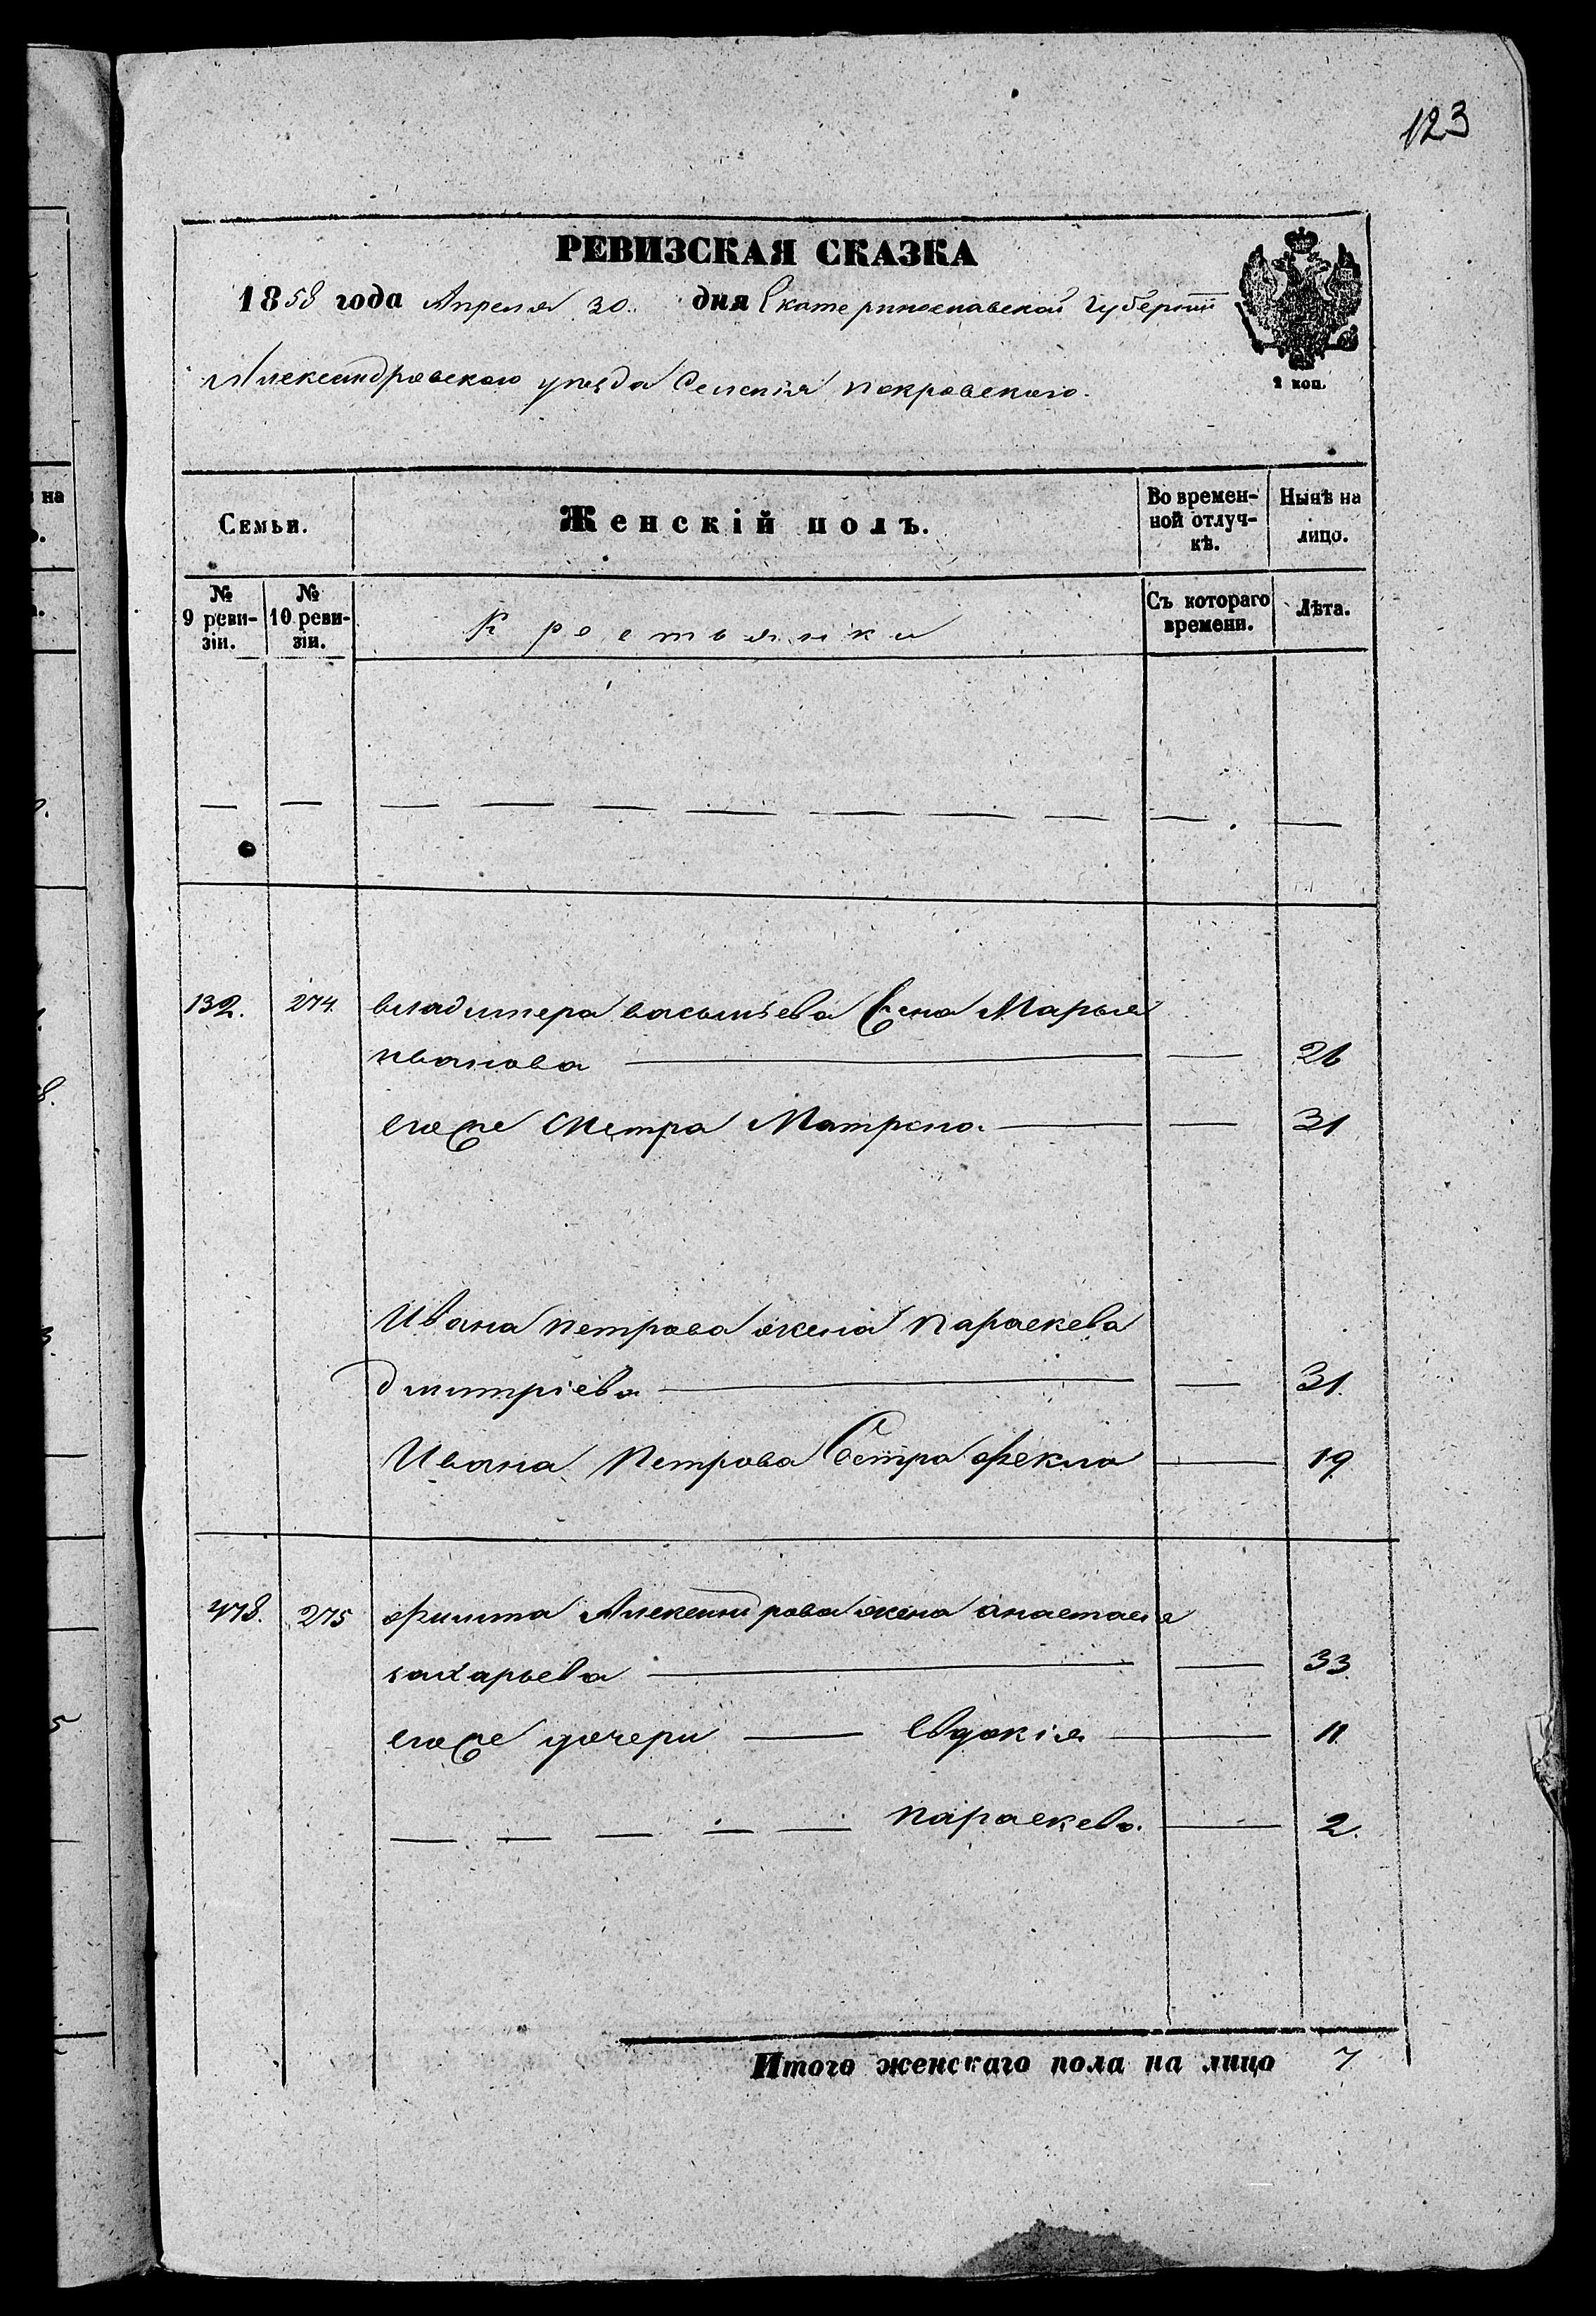 123
РЕВИЗСКАЯ СКАЗКА
1858 года Апреля 30. дня Екатеринославской Губернии
Александровского уезда Селения покровского.
2 коп.
Семьи. Женскій полъ. Во времен- Нынѣ на
ной отлуч- лицо.
кѣ.
№ № Съ котораго Лѣта.
9 реви- 10 реви- времени.
зіи. зіи.
Крестьянки
132. 274. владимера васильева Жена Марья
иванова — — 26
егоже Сестра Матрена. — — 31
Ивана петрова жена параскева
дмитріева — — 31.
Ивана Петрова Сестра фекла — 19
478. 275 филипа Александрова жена анастасия
захарьева — — 33.
егоже дочери — Евдокія — 11.
— — — — — параскева. — 2.
Итого женскаго пола на лицо 7
на